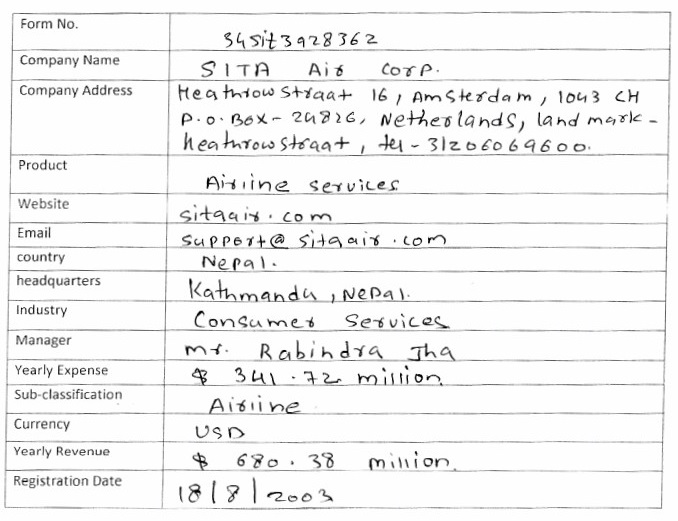 Form No.
34sit3928362
Company Name
SITA Air Corp.
Company Address
Heathrowstraat 16, Amsterdam, 1043 CH
P.O. Box - 24826, Netherlands, land mark -
heathrowstraat, tel - 31206069600.
Product
Airline services
Website
sitaair.com
Email
support@sitaair.com
country
Nepal.
headquarters
Kathmandu, Nepal.
Industry
Consumer Services
Manager
mr. Rabindra Jha
Yearly Expense
$ 341.72 million
Sub-classification
Airline
Currency
USD
Yearly Revenue
$ 680.38 million.
Registration Date
18/8/2003